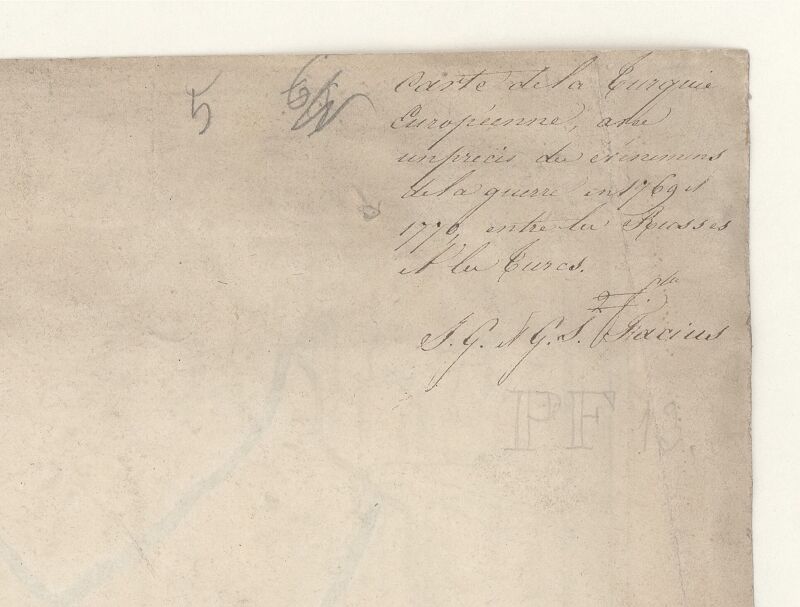 5
Carte de la Turquie
Européenne, avec
un précis des événemens
de la guerre en 1769 et
1770, entre les Russes
et les Turcs.
2 f.
J. G. et G. S. Facius
PF 13.